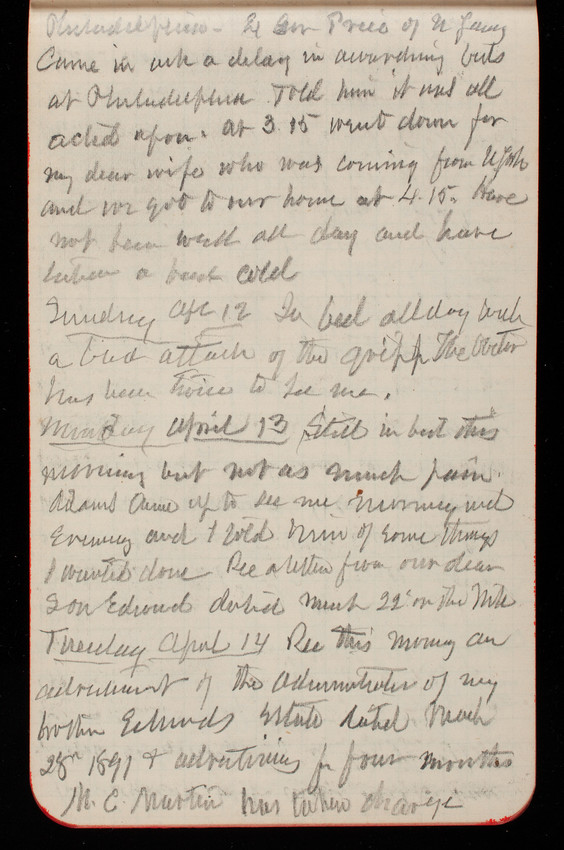 Philadelphia - Ex Gov Price of N Jersey
Came in ask a delay in awarding bids
at Philadelphia Told him it was all
acted upon. at 3.15 went down for
my dear wife who was coming from NYork
and we got to our home at 4.15. Have
not been well all day and have
taken a bad cold
Sunday Apl 12 In bed all day with
a bad attack of the gripp The Doctor
has been twice to see me.
Monday April 13 Still in bed this
morning but not as much pain.
Adams came up to see me morning and
Evening and I told him of some things
I wanted done Rec a letter from our dear
Son Edward dated March 22d on the Nile
Tuesday April 14 Rec this morning an
advertisment of the administrator of my
brother Edwards Estate dated March
28th 1891 & advertising for four months
M. C. Martin has taken charge